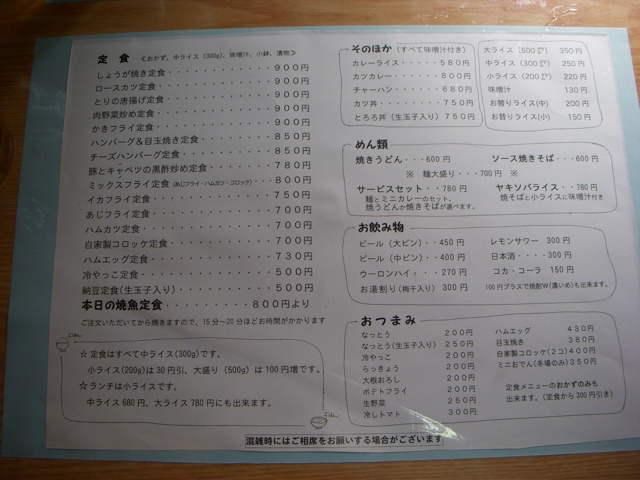 定食 ≪おかず、中ライス(300g)、味噌汁、小鉢、漬物≫
しょうが焼き定食・・・・・・・・・・・・900円
ロースカツ定食・・・・・・・・・・・・・900円
とりの唐揚げ定食・・・・・・・・・・・・900円
肉野菜炒め定食・・・・・・・・・・・・・900円
かきフライ定食・・・・・・・・・・・・・900円
ハンバーグ&目玉焼き定食・・・・・・・・850円
チーズハンバーグ定食・・・・・・・・・・850円
豚とキャベツの黒酢炒め定食・・・・・・・780円
ミックスフライ定食(あじフライ・ハムカツ・コロッケ)・・・800円
イカフライ定食・・・・・・・・・・・・・750円
あじフライ定食・・・・・・・・・・・・・700円
ハムカツ定食・・・・・・・・・・・・・・700円
自家製コロッケ定食・・・・・・・・・・・700円
ハムエッグ定食・・・・・・・・・・・・・730円
冷やっこ定食・・・・・・・・・・・・・・500円
納豆定食(生玉子入り)・・・・・・・・・・500円
本日の焼魚定食・・・・・・・・・800円より
ご注文いただいてから焼きますので、15分~20分ほどお時間がかかります
☆ 定食はすべて中ライス(300g)です。
小ライス(200g)は30円引、大盛り(500g)は100円増です。
☆ ランチは小ライスです。
中ライス680円、大ライス780円にも出来ます。
そのほか (すべて味噌汁付き)
カレーライス・・・・・580円
カツカレー・・・・・・800円
チャーハン・・・・・・680円
カツ丼・・・・・・・・750円
とろろ丼(生玉子入り)750円
大ライス(500㌘)350円
中ライス(300㌘)250円
小ライス(200㌘)220円
味噌汁 130円
お替りライス(中)200円
お替りライス(小)150円
めん類
焼きうどん・・・600円 ソース焼きそば・・600円
※ 麺大盛り・・・700円 ※
サービスセット・・780円 ヤキソバライス・・780円
麺とミニカレーのセット。 焼そばと小ライスに味噌汁付き
焼うどんか焼きそばが選べます。
お飲み物
ビール(大ビン)・・450円 レモンサワー 300円
ビール(中ビン)・・400円 日本酒・・・・300円
ウーロンハイ・・・270円 コカ・コーラ 150円
お湯割り(梅干入り)300円 100円プラスで焼酎W(濃いめ)も出来ます。
おつまみ
なっとう 200円
なっとう(生玉子入り)250円
冷やっこ 200円
らっきょう 200円
大根おろし 200円
ポテトフライ 200円
生野菜 250円
冷しトマト 300円
ハムエッグ 430円
目玉焼き 380円
自家製コロッケ(2コ)400円
ミニおでん(冬場のみ)350円
定食メニューのおかずのみも
出来ます。(定食から300円引き)
混雑時にはご相席をお願いする場合がございます